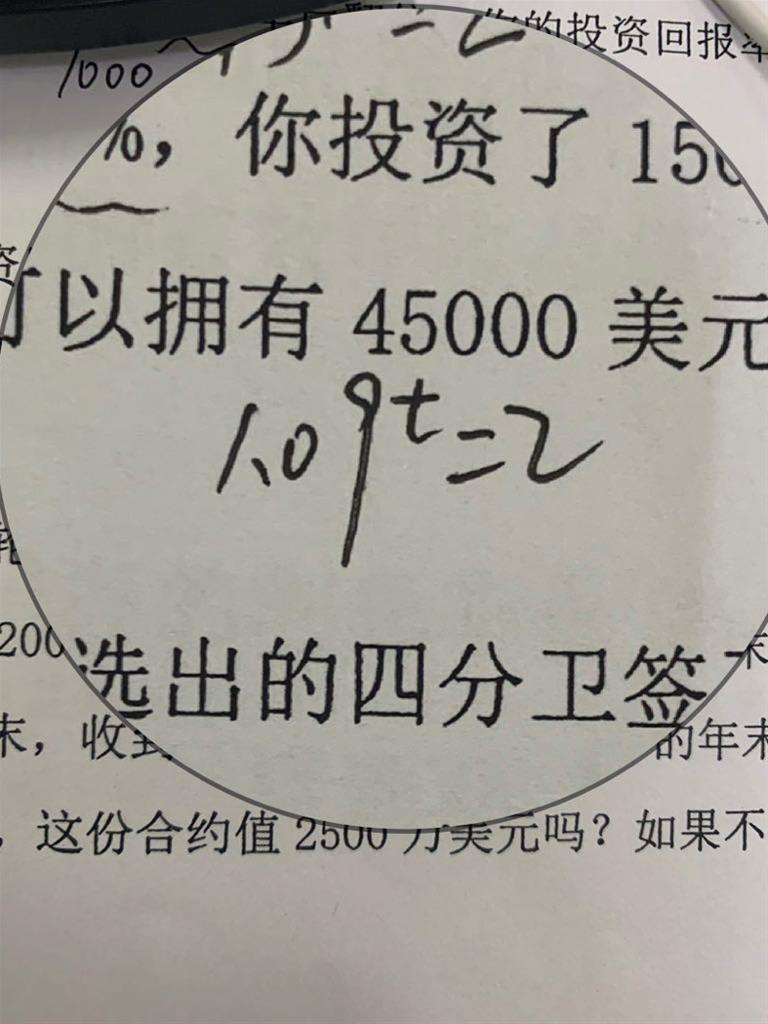 你的投资回报率
1000
%，你投资了 150
可以拥有 45000 美元
1.09^t=2
200
选出的四分卫签
末
末，收到
的年末
，这份合约值 2500 万美元吗？如果不